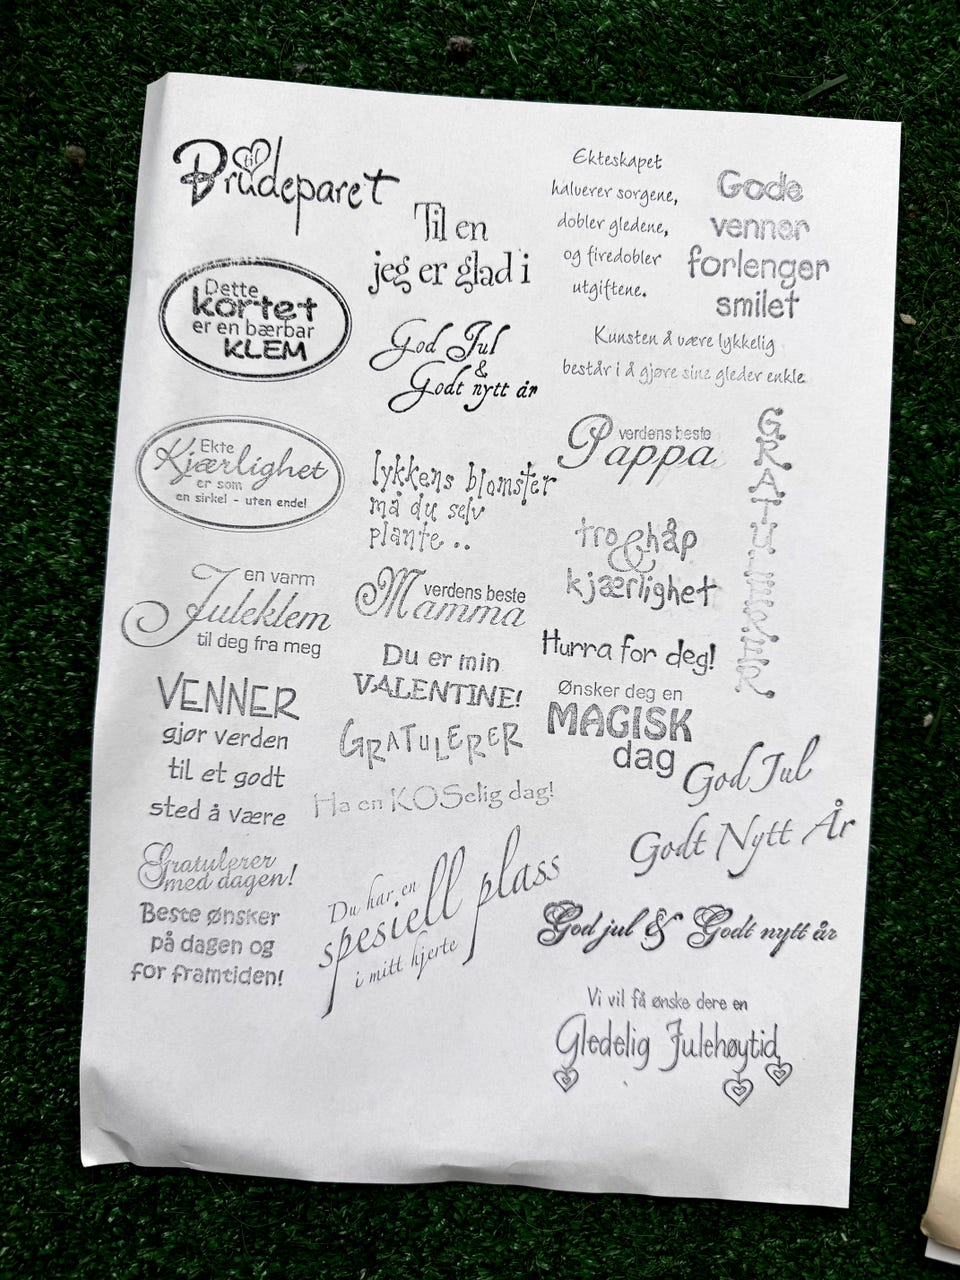 til
Brudeparet
Til en
jeg er glad i
Ekteskapet
halverer sorgene,
dobler gledene,
og firedobler
utgiftene.
Gode
venner
forlenger
smilet
Dette
kortet
er en bærbar
KLEM
God Jul
&
Godt nytt år
Kunsten å være lykkelig
består i å gjøre sine gleder enkle
Ekte
Kjærlighet
er som
en sirkel - uten ende!
lykkens blomster
må du selv
plante ..
verdens beste
Pappa
GRATULERER
tro & håp
kjærlighet
en varm
Juleklem
til deg fra meg
verdens beste
Mamma
Hurra for deg!
Du er min
VALENTINE!
VENNER
gjør verden
til et godt
sted å være
GRATULERER
Ønsker deg en
MAGISK
dag
Ha en KOSelig dag!
God Jul
Godt Nytt År
Gratulerer
med dagen!
Beste ønsker
på dagen og
for framtiden!
Du har en
spesiell plass
i mitt hjerte
God jul & Godt nytt år
Vi vil få ønske dere en
Gledelig Julehøytid